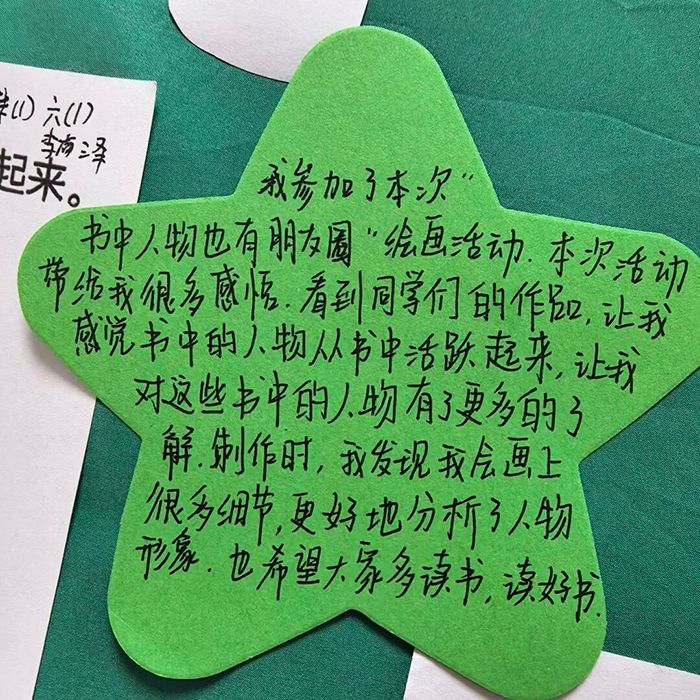 六(1)
李尚泽
起来。
我参加了本次“
书中人物也有朋友圈”绘画活动.本次活动
带给我很多感悟.看到同学们的作品,让我
感觉书中的人物从书中活跃起来,让我
对这些书中的人物有了更多的了
解.制作时,我发现我会画上
很多细节,更好地分析了人物
形象.也希望大家多读书,读好书.